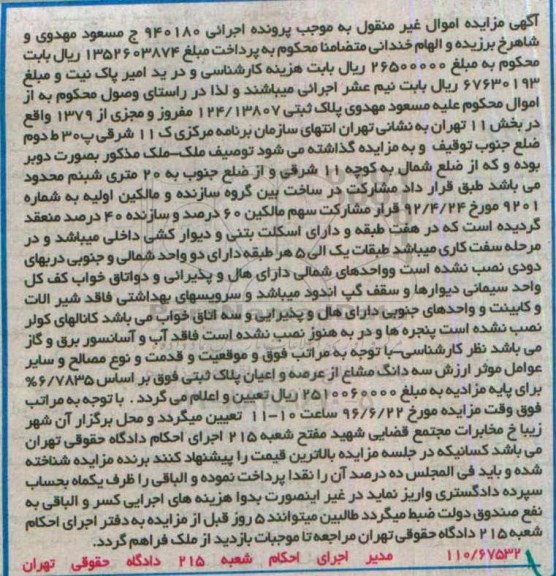 آگهی مزایده اموال غیر منقول به موجب پرونده اجرائی ۹۴۰۱۸۰ ج مسعود مهدوی و
شاهرخ برزیده و الهام خندانی متضامنا محکوم به پرداخت مبلغ ۱۳۵۲۶۰۳۸۷۴ ریال بابت
محکوم به مبلغ ۲۶۵۰۰۰۰۰ ریال بابت هزینه کارشناسی و در ید امیر پاک نیت و مبلغ
۶۷۶۳۰۱۹۳ ریال بابت نیم عشر اجرائی میباشند و لذا در راستای وصول محکوم به از
اموال محکوم علیه مسعود مهدوی پلاک ثبتی ۱۲۴/۱۳۸۰۷ مفروز و مجزی از ۱۳۷۹ واقع
در بخش ۱۱ تهران به نشانی تهران انتهای سازمان برنامه مرکزی ک ۱۱ شرقی پ۳۰ ط دوم
ضلع جنوب توقیف و به مزایده گذاشته می شود توصیف ملک–ملک مذکور بصورت دوبر
بوده و که از ضلع شمال به کوچه ۱۱ شرقی و از ضلع جنوب به ۲۰ متری شبنم محدود
می باشد طبق قرار داد مشارکت در ساخت بین گروه سازنده و مالکین اولیه به شماره
۹۲۰۱ مورخ ۹۲/۴/۲۴ قرار مشارکت سهم مالکین ۶۰ درصد و سازنده ۴۰ درصد منعقد
گردیده است که در هفت طبقه و دارای اسکلت بتنی و دیوار کشی داخلی میباشد و در
مرحله سفت کاری میباشد طبقات یک الی ۵ هر طبقه دارای دو واحد شمالی و جنوبی دربهای
دودی نصب نشده است وواحدهای شمالی دارای هال و پذیرائی و دواتاق خواب کف کل
واحد سیمانی دیوارها و سقف گپ اندود میباشد و سرویسهای بهداشتی فاقد شیر الات
و کابینت و واحدهای جنوبی دارای هال و پذیرایی و سه اتاق خواب می باشد کانالهای کولر
نصب نشده است پنجره ها و در به هنوز نصب نشده است فاقد آب و آسانسور برق و گاز
می باشد نظر کارشناسی–با توجه به مراتب فوق و موقعیت و قدمت و نوع مصالح و سایر
عوامل موثر ارزش سه دانگ مشاع از عرصه و اعیان پلاک ثبتی فوق بر اساس ۶/۷۸۳۵%
برای پایه مزادیه به مبلغ ۲۵۱۰۰۶۰۰۰۰ ریال تعیین و اعلام می گردد . با توجه به مراتب
فوق وقت مزایده مورخ ۹۶/۶/۲۲ ساعت ۱۰-۱۱ تعیین میگردد و محل برگزار آن شهر
زیبا خ مخابرات مجتمع قضایی شهید مفتح شعبه ۲۱۵ اجرای احکام دادگاه حقوقی تهران
می باشد کسانیکه در جلسه مزایده بالاترین قیمت را پیشنهاد کنند برنده مزایده شناخته
شده و باید فی المجلس ده درصد آن را نقدا پرداخت نموده و الباقی را ظرف یکماه بحساب
سپرده دادگستری واریز نماید در غیر اینصورت بدوا هزینه های اجرایی کسر و الباقی به
نفع صندوق دولت ضبط میگردد طالبین میتوانند ۵ روز قبل از مزایده به دفتر اجرای احکام
شعبه ۲۱۵ دادگاه حقوقی تهران مراجعه تا موجبات بازدید از ملک فراهم گردد.
۱۱۰/۶۷۵۳۲ مدیر اجرای احکام شعبه ۲۱۵ دادگاه حقوقی تهران